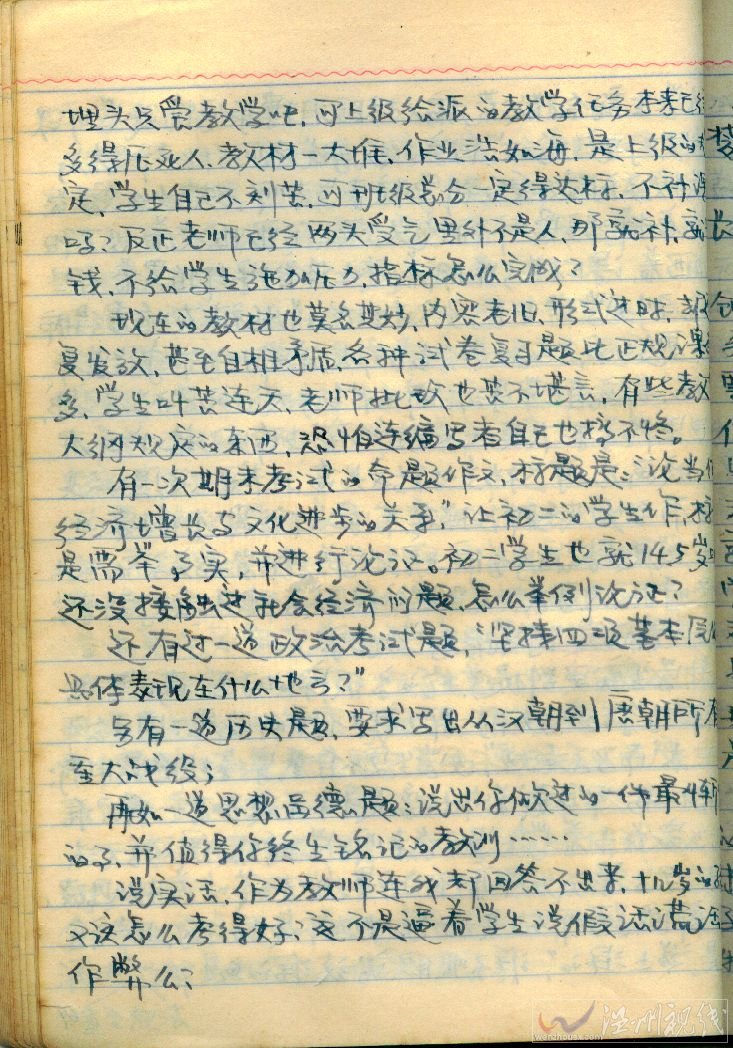 埋头只管教学吧，可上级给派的教学任务本来已经
多得压死人，教材一大堆，作业浩如海，是上级的规
定，学生自己不刻苦，可班级总分一定得达标，不补课
吗？反正老师已经两头受气里外不是人，那就补，就
钱，不给学生施加压力，指标怎么完成？
现在的教材也莫名其妙，内容老旧，形式过时，
复发放，甚至自相矛盾，各种试卷复习题比正规课
多，学生叫苦连天，老师批改也苦不堪言，有些教
大纲规定的东西，恐怕连编写者自己也搞不懂。
有一次期末考试的命题作文，标题是：“论当
经济增长与文化进步的关系”，让初二的学生作，
是需举事实，并进行论证。初二学生也就14.5岁
还没接触过社会经济问题，怎么举例论证？
还有过一道政治考试题，“坚持四项基本原
具体表现在什么地方？”
另有一道历史题，要求写出从汉朝到唐朝所有
至大战役；
再如一道思想品德题：说出你做过的一件最
的事，并值得你终生铭记的教训……
说实话，作为教师连我都回答不出来，十几岁的
又该怎么考得好？这不是逼着学生说假话谎话
作弊么？
温州视线
wenzhouvs.com